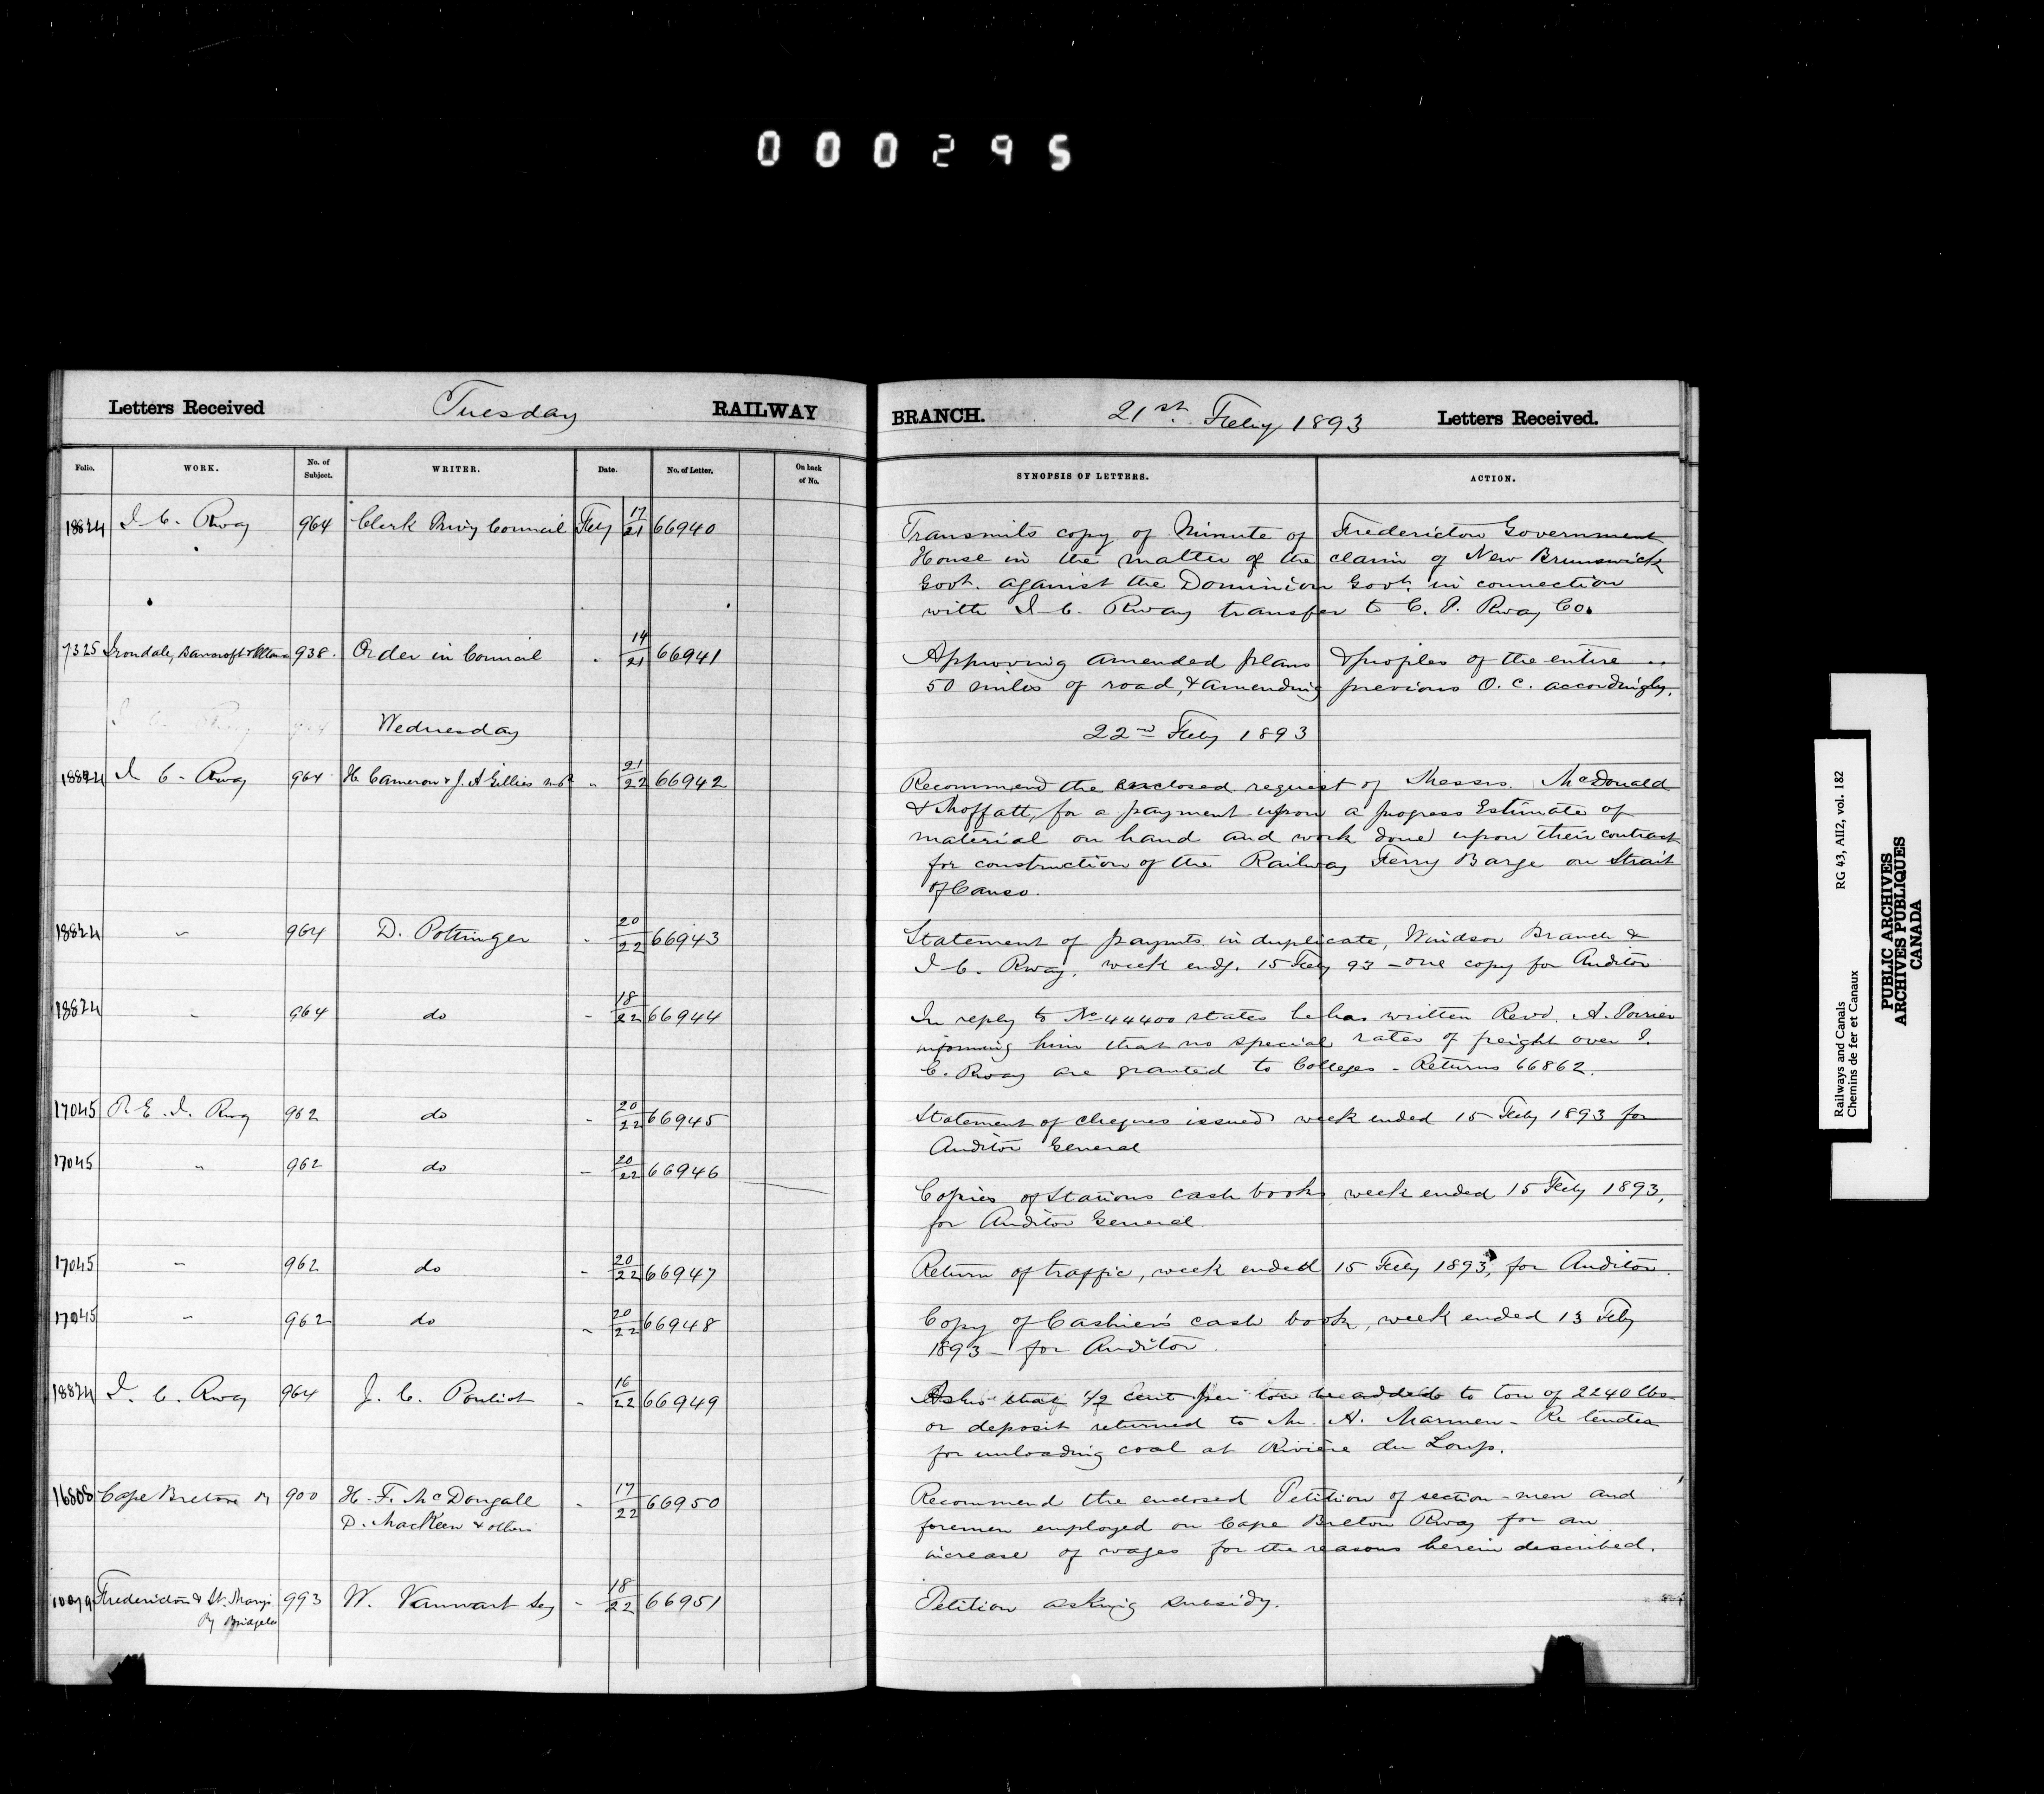 000295
Letters Received Tuesday RAILWAY BRANCH. 21st Feby 1893 Letters Received.
Folio. WORK. No. of Subject. WRITER. Date. No. of Letter. On back of No. SYNOPSIS OF LETTERS. ACTION.
18824 I. C. Rway 964 Clerk Privy Council Feby 17/21 66940 Transmits copy of Minute of Fredericton Government
House in the matter of the claim of New Brunswick
Govt. against the Dominion Govt. in connection
with I. C. Rway transfer to C. P. Rway Co.
7325 Irondale, Bancroft & 938. Order in Council " 14/21 66941 Approving amended plans & profiles of the entire
50 miles of road, & amending previous O. C. accordingly.
Wednesday 22nd Feby 1893
18824 I. C. Rway 964 H. Cameron & J. A Gillies " 21/22 66942 Recommend the enclosed request of Messrs. McDonald
& Moffatt, for a payment upon a progress Estimate of
material on hand and work done upon their contract
for construction of the Railway Ferry Barge on Strait
of Canso.
18824 " 964 D. Pottinger " 20/22 66943 Statement of paymts. in duplicate, Windsor Branch &
I. C. Rway, week endg. 15 Feby 93 - one copy for Auditor
18824 " 964 do " 18/22 66944 In reply to No 44400 states he has written Revd. A. Poirier
informing him that no special rates of freight over I.
C. Rway are granted to Colleges - Returns 66862.
17045 P. E. I. Rwy 962 do " 20/22 66945 Statement of cheques issued week ended 15 Feby 1893 for
Auditor General
17045 " 962 do " 20/22 66946
Copies of Stations cash books, week ended 15 Feby 1893,
for Auditor General
17045 " 962 do " 20/22 66947 Return of traffic, week ended 15 Feby 1893, for Auditor.
17045 " 962 do " 20/22 66948 Copy of Cashier's cash book, week ended 13 Feby
1893 - for Auditor.
18824 I. C. Rwy 964 J. C. Pouliot " 16/22 66949 Asks that 1/2 cent per ton be added to ton of 2240 lbs
or deposit returned to Mr. H. Marmen - Re tender
for unloading coal at Rivière du Loup.
16808 Cape Breton Ry 900 H. F. McDougall " 17/22 66950 Recommend the enclosed Petition of section-men and
D. MacKeen & others foremen employed on Cape Breton Rway for an
increase of wages for the reasons herein described.
Fredericton & St. Marys 993 W. Vanwart " 18/22 66951 Petition asking subsidy.
Ry Bridge
Railways and Canals RG 43, AII2, vol. 182
Chemins de fer et Canaux
PUBLIC ARCHIVES
ARCHIVES PUBLIQUES
CANADA